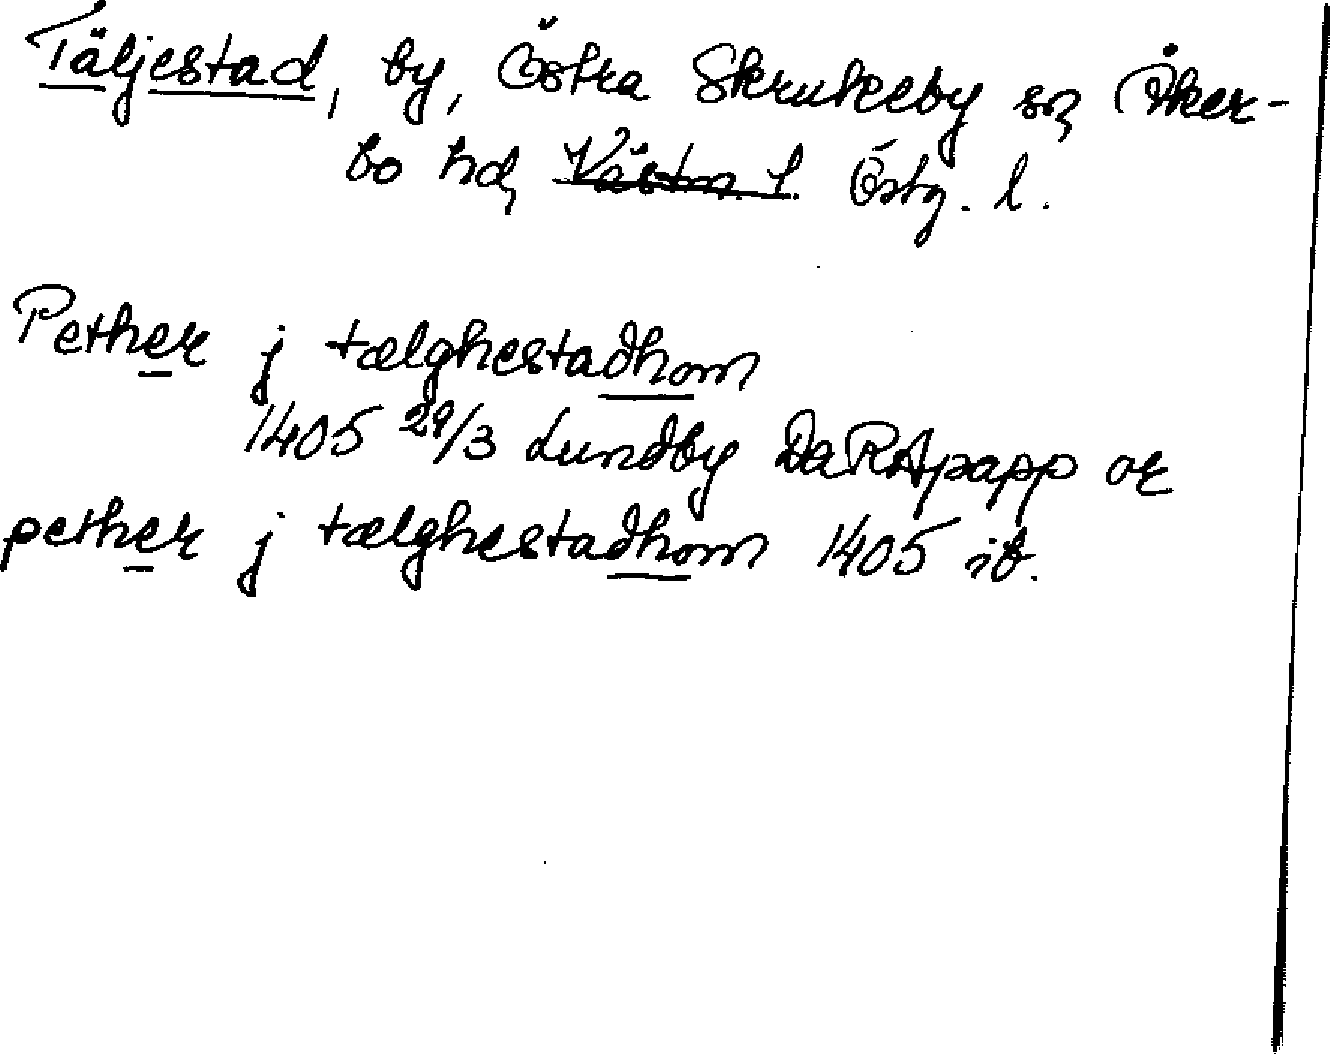 Täljestad, by, Östra Skrukeby sn, Åker-
bo hd, Västm. l. Östg. l.
Pether j tælghestadhom
1405 29/3 Lundby DaRApapp or
pether j tælghestadhom 1405 ib.